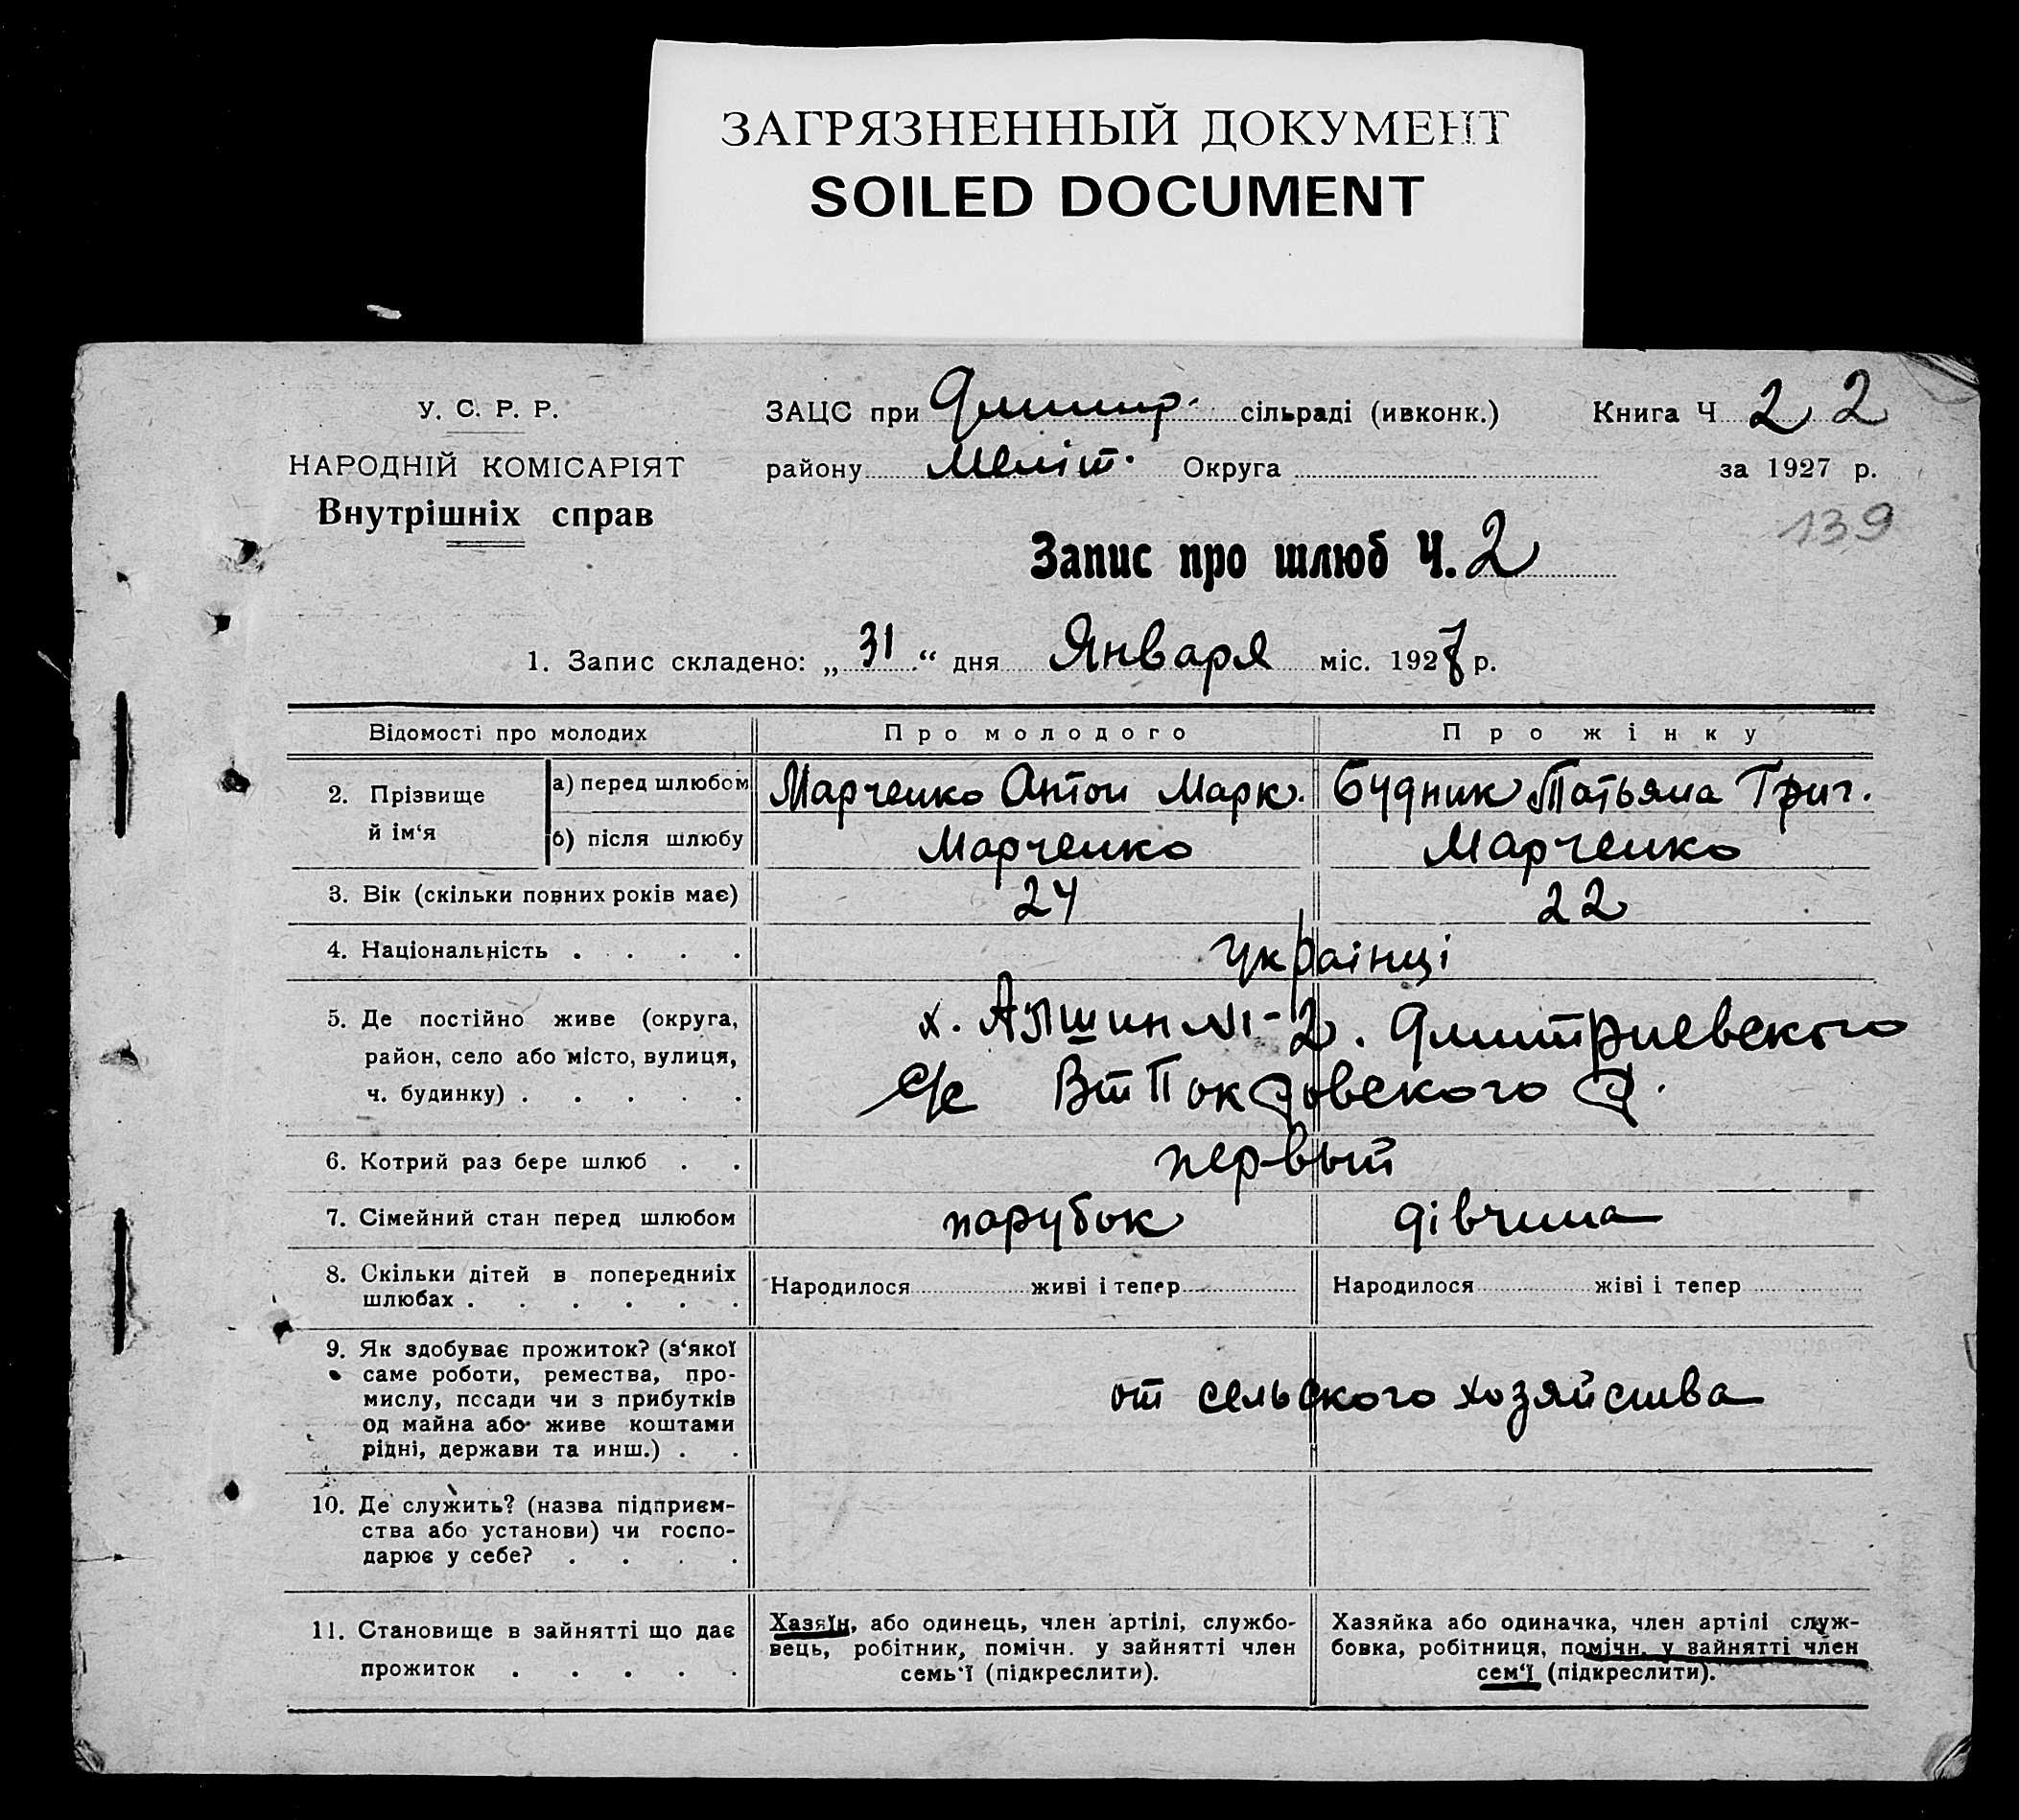 ЗАГРЯЗНЕННЫЙ ДОКУМЕНТ
SOILED DOCUMENT
У. С. Р. Р.
НАРОДНІЙ КОМІСАРІЯТ
Внутрішніх справ
ЗАЦС при Дмитр. сільраді (ивконк.)
району Меліт. Округа
Книга Ч 2 2
за 1927 р.
139
Запис про шлюб Ч. 2
1. Запис складено: „31“ дня Января міс. 192 р.
Відомості про молодих Про молодого Про жінку
2. Прізвище й ім‘я
а) перед шлюбом Марченко Антон Марк. Будник Татьяна Григ.
б) після шлюбу Марченко Марченко
3. Вік (скільки повних років має) 24 22
4. Національність . . . . українці
5. Де постійно живе (округа,
район, село або місто, вулиця,
ч. будинку) . . . . .
х. №-2. Дмитриевского
с/с ВтПокровского р.
6. Котрий раз бере шлюб . . первый
7. Сімейний стан перед шлюбом парубок дівчина
8. Скільки дітей в попередниіх
шлюбах . . . . . .
Народилося живі і тепер Народилося жіві і тепер
9. Як здобуває прожиток? (з‘якої
саме роботи, ремества, про-
мислу, посади чи з прибутків
од майна або живе коштами
рідні, держави та инш.) . .
от сельского хозяйства
10. Де служить? (назва підприєм-
ства або установи) чи госпо-
дарює у себе? . . . .
11. Становище в зайнятті що дає
прожиток . . . . .
Хазяїн, або одинець, член артілі, службо-
вець, робітник, помічн. у зайнятті член
семь‘ї (підкреслити).
Хазяйка або одиначка, член артілі служ-
бовка, робітниця, помічн. у зайнятті член
сем‘ї (підкреслити).